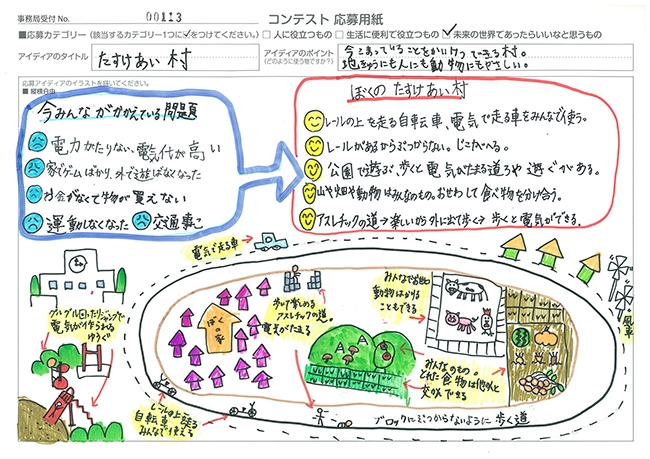 事務局受付 No. 00113
コンテスト 応募用紙
■応募カテゴリー (該当するカテゴリー1つに✓をつけてください。) □ 人に役立つもの □ 生活に便利で役立つもの ☑ 未来の世界であったらいいなと思うもの
アイディアのタイトル
たすけあい村
アイディアのポイント
(どのように使う物ですか?)
今こまっていることをかいけつできる村。
地きゅうにも人にも動物にもやさしい。
応募アイディアのイラストを描いてください。
■ 縦横自由
今みんながかかえている問題
電力がたりない、電気代が高い
家でゲームばかり、外で遊ばなくなった
お金がなくて物が買えない
運動しなくなった
交通事こ
ぼくのたすけあい村
レールの上を走る自転車、電気で走る車をみんなで使う。
レールがあるからぶつからない。じこがへる。
公園で遊ぶ、歩くと電気がたまる道ろや遊ぐがある。
山や畑や動物はみんなのもの。おせわして食べ物を分け合う。
アスレチックの道→楽しいから外に出て歩く→歩くと電気ができる。
電気で走る車
グルグル回ったりジャンプで
電気が作れる
ゆうぐ
ぼくの家
歩いて楽しめる
アスレチックの道。
電気がたまる
みんなでお世話
動物はかりる
こともできる
みんなのもの。
とれた食物は他の人と
交かんできる
風車
レールの上を
自転車走る
みんなで使える
ブロックにぶつからないように歩く道